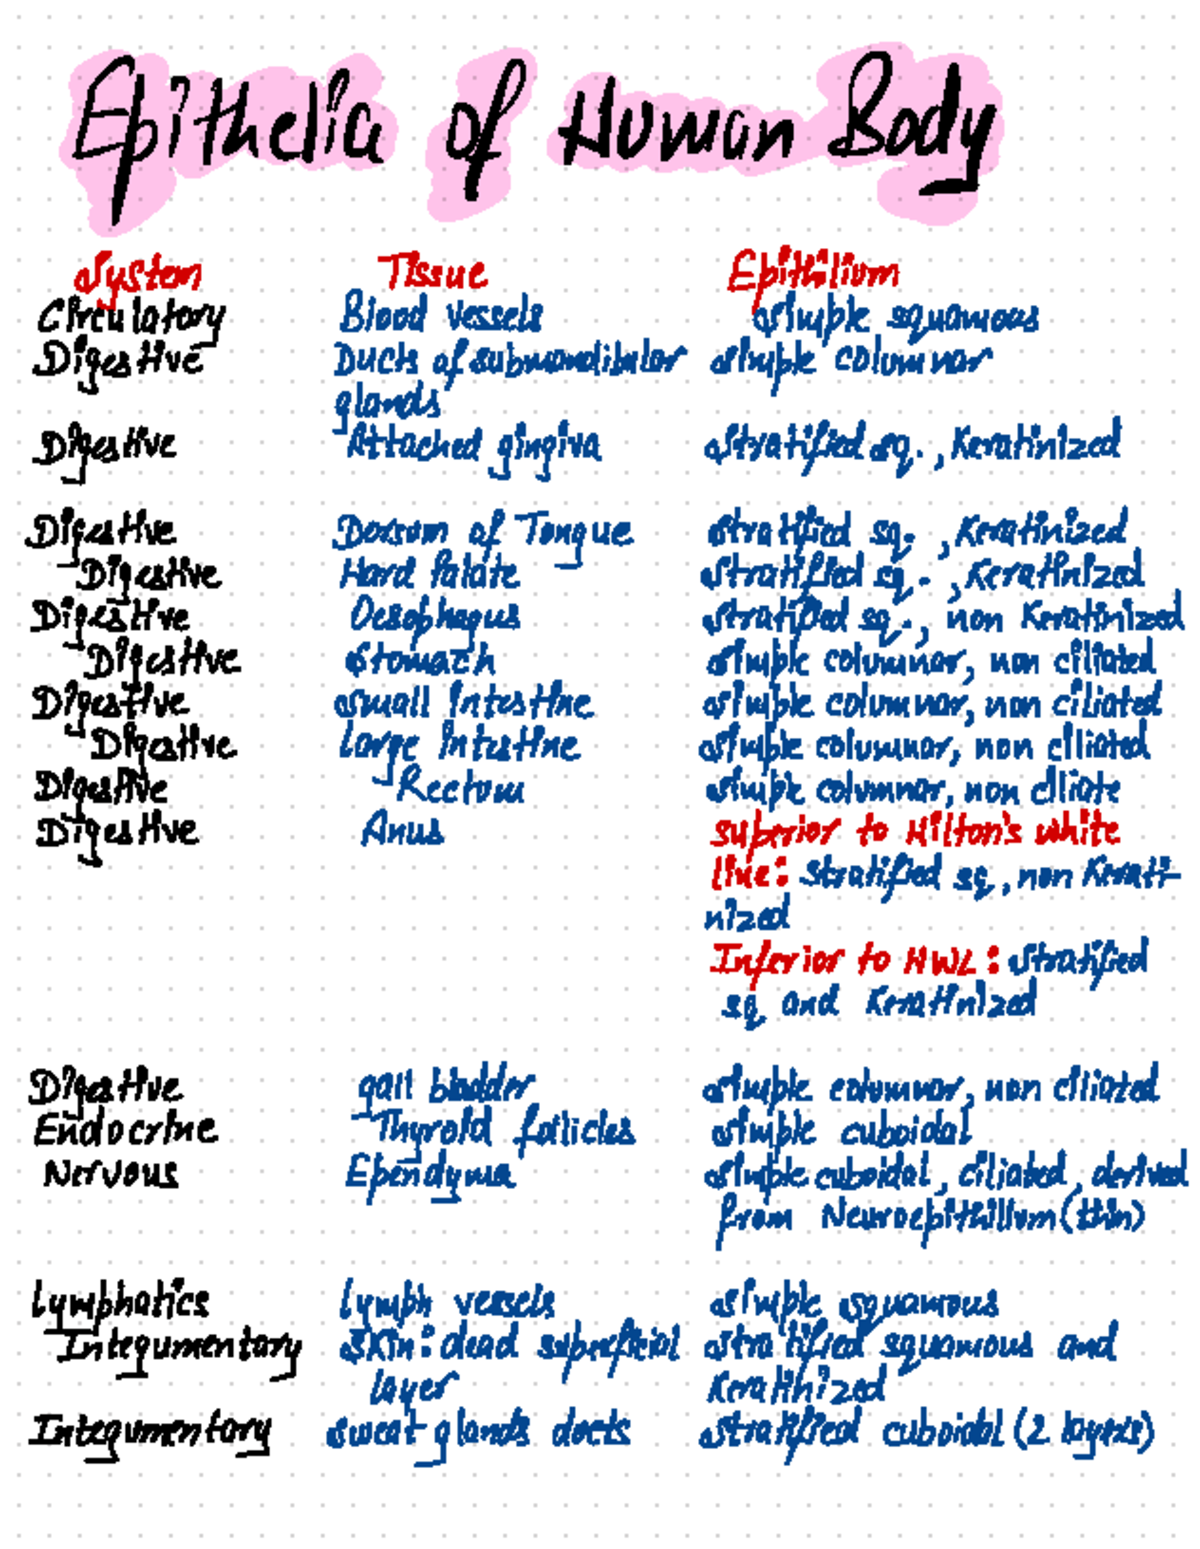 Epithelia of Human Body
System Tissue Epithilium
Circulatory Blood vessels simple squamous
Digestive Ducts of submandibular simple columnar
glands
Digestive Attached gingiva stratified sq. , Keratinized
Digestive Dorsum of Tongue stratified sq. , Keratinized
Digestive Hard Palate stratified sq. , Keratinized
Digestive Oesophagus stratified sq. , non Keratinized
Digestive Stomach simple columnar, non ciliated
Digestive small intestine simple columnar, non ciliated
Digestive large intestine simple columnar, non ciliated
Digestive Rectum simple columnar, non ciliate
Digestive Anus superior to Hilton's white
line: stratified sq, non Kerati-
nized
Inferior to HWL: stratified
sq and Keratinized
Digestive gall bladder simple columnar, non ciliated
Endocrine Thyroid follicles simple cuboidal
Nervous Ependyma simple cuboidal, ciliated, derived
from Neuroepithilium (thin)
lymphatics lymph vessels simple squamous
Integumentary skin: dead superficial stratified squamous and
layer Keratinized
Integumentary sweat glands ducts stratified cuboidal (2 layers)